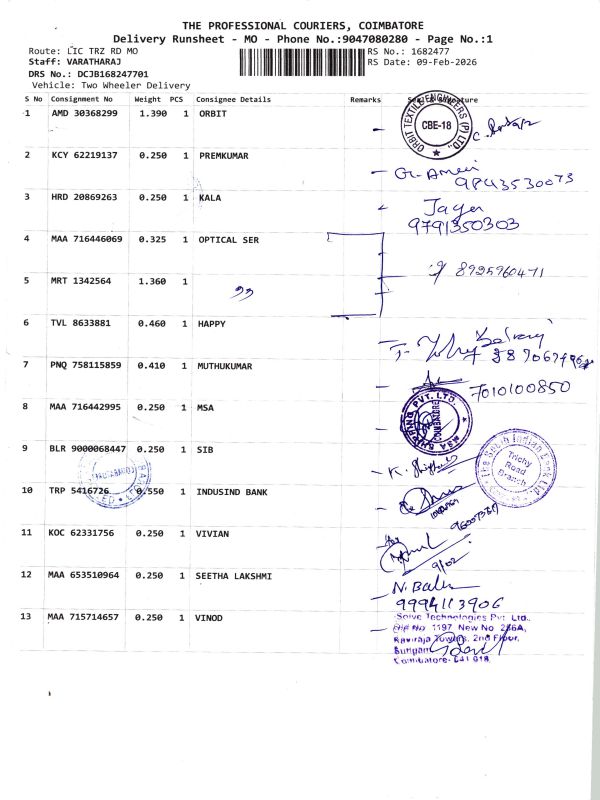 THE PROFESSIONAL COURIERS, COIMBATORE
Delivery Runsheet - MO - Phone No.:9047080280 - Page No.:1
Route: LIC TRZ RD MO
RS No.: 1682477
Staff: VARATHARAJ
RS Date: 09-Feb-2026
DRS No.: DCJB168247701
Vehicle: Two Wheeler Delivery
S No Consignment No Weight PCS Consignee Details Remarks
1 AMD 30368299 1.390 1 ORBIT
ORBIT TEXTILE ENGINEERS (P) LTD.,
CBE-18
2 KCY 62219137 0.250 1 PREMKUMAR
9843530073
3 HRD 20869263 0.250 1 KALA
9791350303
4 MAA 716446069 0.325 1 OPTICAL SER
8925960471
5 MRT 1342564 1.360 1
6 TVL 8633881 0.460 1 HAPPY
7 PNQ 758115859 0.410 1 MUTHUKUMAR
7010100850
8 MAA 716442995 0.250 1 MSA
MSA SHIPPING PVT. LTD.
COIMBATORE
9 BLR 9000068447 0.250 1 SIB
The South Indian Bank Ltd.
Trichy
Road
Branch
10 TRP 5416726 0.550 1 INDUSIND BANK
11 KOC 62331756 0.250 1 VIVIAN
9/02
12 MAA 653510964 0.250 1 SEETHA LAKSHMI
9994113906
13 MAA 715714657 0.250 1 VINOD
Technologies Pvt. Ltd.,
1197, New No
Raviraja Towers, 2nd Floor,
Coimbatore- 641 018